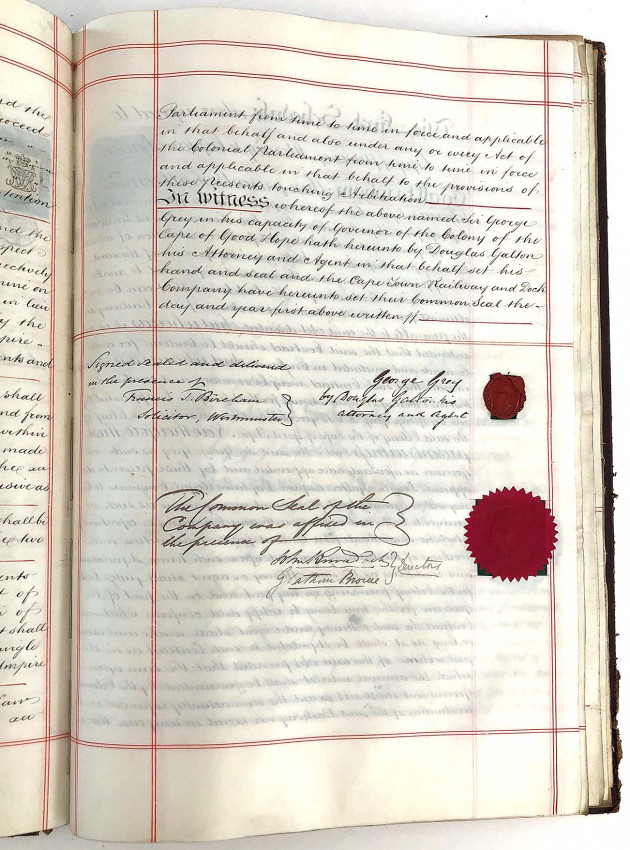 Parliament from time to time in force and applicable
in that behalf and also under any or every Act of
the Colonial Parliament from time to time in force
and applicable in that behalf to the provisions of
these Presents touching Arbitration
In Witness whereof the above named Sir George
Grey in his capacity of Governor of the Colony of the
Cape of Good Hope hath hereunto by Douglas Galton
his Attorney and Agent in that behalf set his
hand and seal and the Cape Town Railway and Dock
Company have hereunto set their Common Seal the
day and year first above written
Signed sealed and delivered
in the presence of
Francis J. Bircham
Solicitor, Westminster
George Grey
by Douglas Galton his
attorney and agent
The Common Seal of the
Company was affixed in
the presence of
John
Directors
and the
proceed-
tention
and the
spect
ectively
mine on
in lieu
by the
mpire-
ents and
shall
and from
within
made
usive as
shall be
e two
ents
t of
of
t shall
ungle
Umpire
Law
an